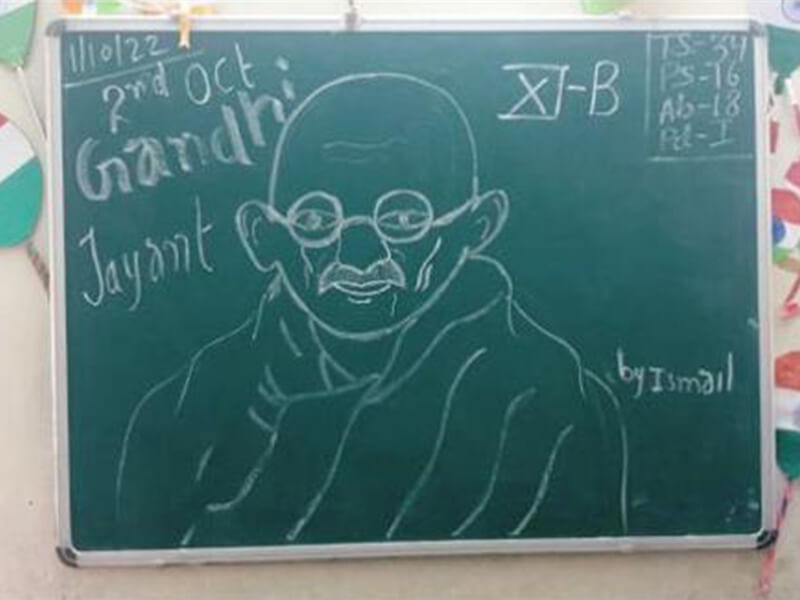 1/10/22
2nd Oct
Gandhi
Jayant
XI-B
TS-34
PS-16
Ab-18
Pd-I
by Ismail